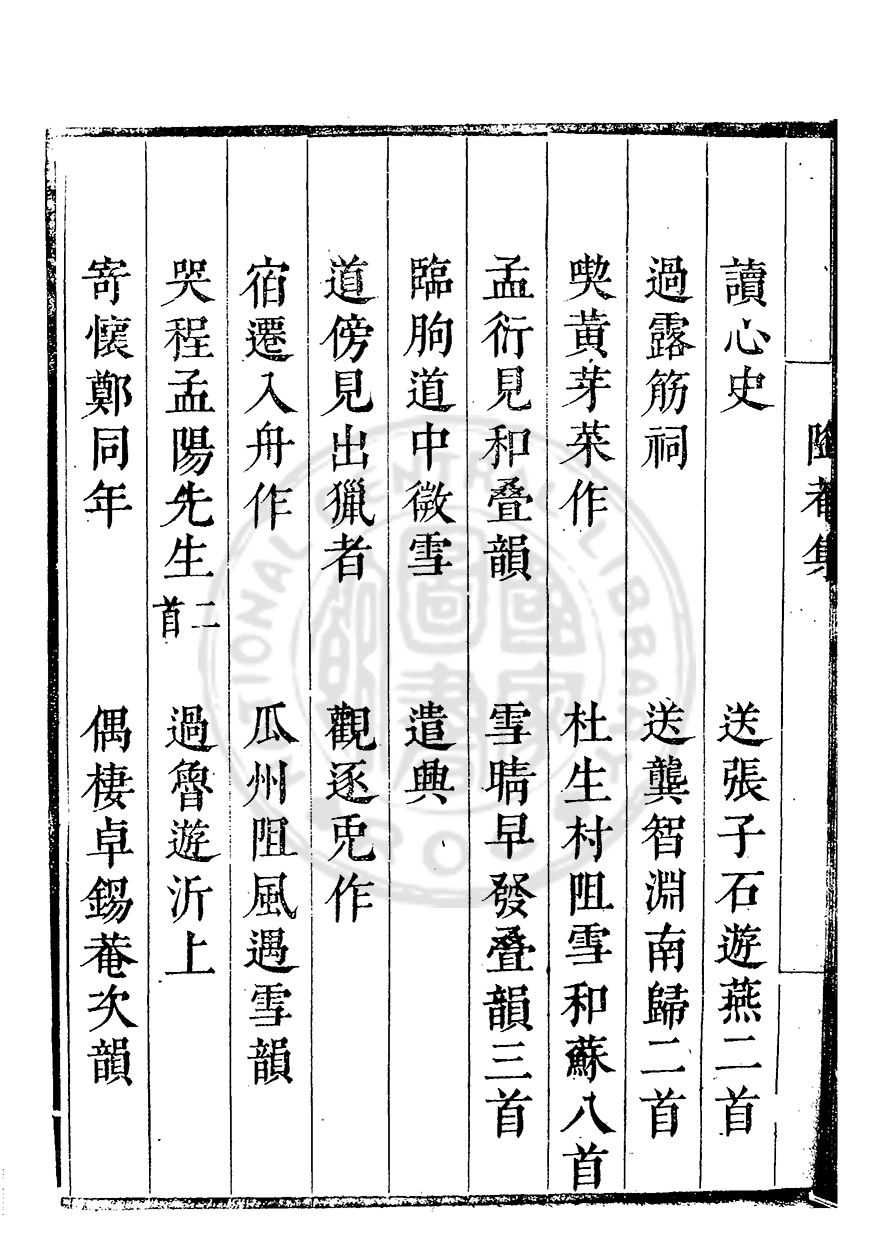 陶菴集
讀心史　送張子石遊燕二首
過露筋祠　送龔智淵南歸二首
喫黃芽菜作　杜生村阻雪和蘇八首
孟衍見和疊韻　雪晴早發疊韻三首
臨朐道中微雪　遣興
道傍見出獵者　觀逐兎作
宿遷入舟作　瓜州阻風遇雪韻
哭程孟陽先生二首　過魯遊沂上
寄懷鄭同年　偶棲卓錫菴次韻